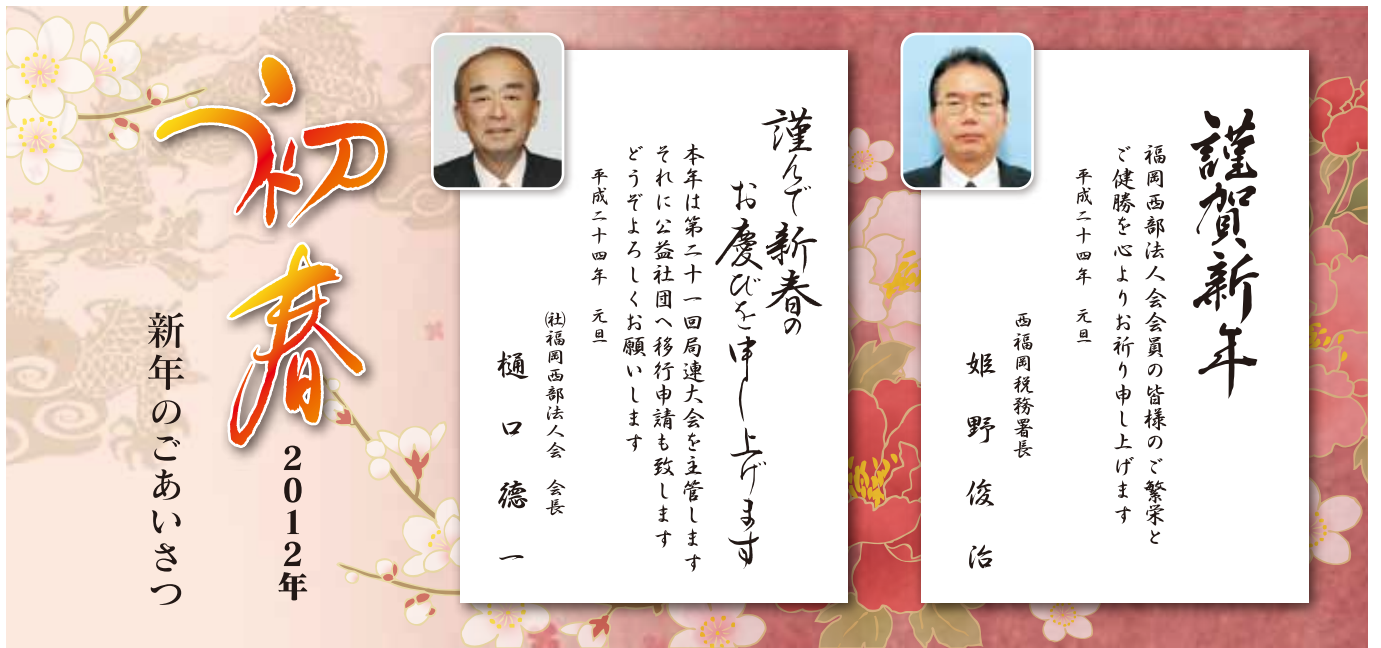 謹賀新年
福岡西部法人会会員の皆様のご繁栄と
ご健勝を心よりお祈り申し上げます
平成二十四年 元旦
西福岡税務署長
姫野俊治
謹んで新春の
お慶びを申し上げます
本年は第二十一回局連大会を主管します
それに公益社団へ移行申請も致します
どうぞよろしくお願いします
平成二十四年 元旦
㈳福岡西部法人会 会長
樋口德一
初春
2012年
新年のごあいさつ